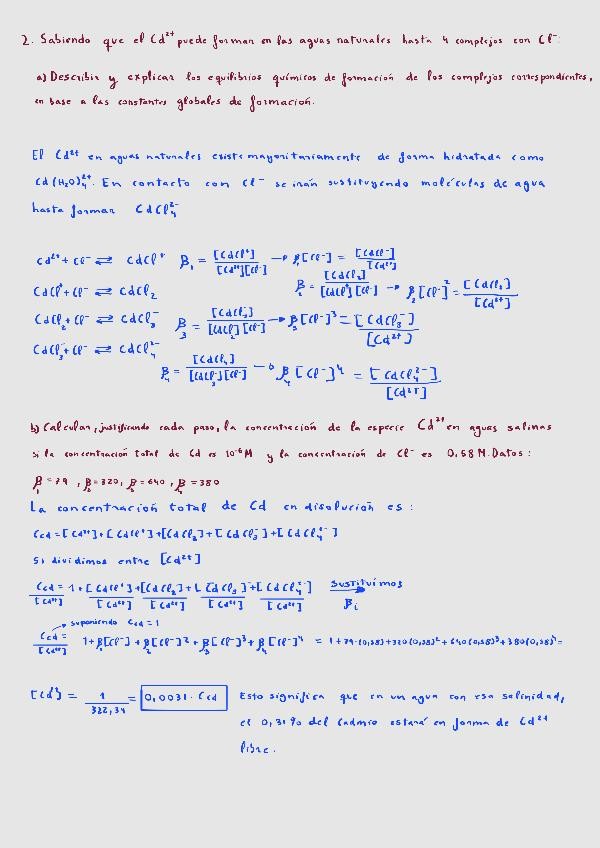 2. Sabiendo que el Cd²⁺ puede formar en las aguas naturales hasta 4 complejos con Cl⁻:
a) Describir y explicar los equilibrios químicos de formación de los complejos correspondientes,
en base a las constantes globales de formación.
El Cd²⁺ en aguas naturales existe mayoritariamente de forma hidratada como
Cd(H₂O)₄²⁺. En contacto con Cl⁻ se irán sustituyendo moléculas de agua
hasta formar CdCl₄²⁻
Cd²⁺ + Cl⁻ ⇌ CdCl⁺ β₁ = [CdCl⁺] / [Cd²⁺][Cl⁻] → β₁[Cl⁻] = [CdCl⁻] / [Cd²⁺]
CdCl⁺ + Cl⁻ ⇌ CdCl₂ β₂ = [CdCl₂] / [CdCl⁺][Cl⁻] → β₂[Cl⁻]² = [CdCl₂] / [Cd²⁺]
CdCl₂ + Cl⁻ ⇌ CdCl₃⁻ β₃ = [CdCl₃⁻] / [CdCl₂][Cl⁻] → β₃[Cl⁻]³ = [CdCl₃⁻] / [Cd²⁺]
CdCl₃⁻ + Cl⁻ ⇌ CdCl₄²⁻ β₄ = [CdCl₄] / [CdCl₃⁻][Cl⁻] → β₄[Cl⁻]⁴ = [CdCl₄²⁻] / [Cd²⁺]
b) Calcular, justificando cada paso, la concentración de la especie Cd²⁺ en aguas salinas
si la concentración total de Cd es 10⁻⁶ M y la concentración de Cl⁻ es 0,58 M. Datos:
β₁ = 79, β₂ = 320, β₃ = 640, β₄ = 380
La concentración total de Cd en disolución es:
Ccd = [Cd²⁺] + [CdCl⁺] + [CdCl₂] + [CdCl₃⁻] + [CdCl₄²⁻]
Si dividimos entre [Cd²⁺]
Ccd / [Cd²⁺] = 1 + [CdCl⁺] / [Cd²⁺] + [CdCl₂] / [Cd²⁺] + [CdCl₃⁻] / [Cd²⁺] + [CdCl₄²⁻] / [Cd²⁺] Sustituimos βi
suponiendo Ccd = 1
Ccd / [Cd²⁺] = 1 + β₁[Cl⁻] + β₂[Cl⁻]² + β₃[Cl⁻]³ + β₄[Cl⁻]⁴ = 1 + 79·(0,58) + 320(0,58)² + 640(0,58)³ + 380(0,58)⁴ =
[Cd²⁺] = 1 / 322,34 = 0,0031·Ccd Esto significa que en un agua con esa salinidad,
el 0,31% del Cadmio estará en forma de Cd²⁺
libre.